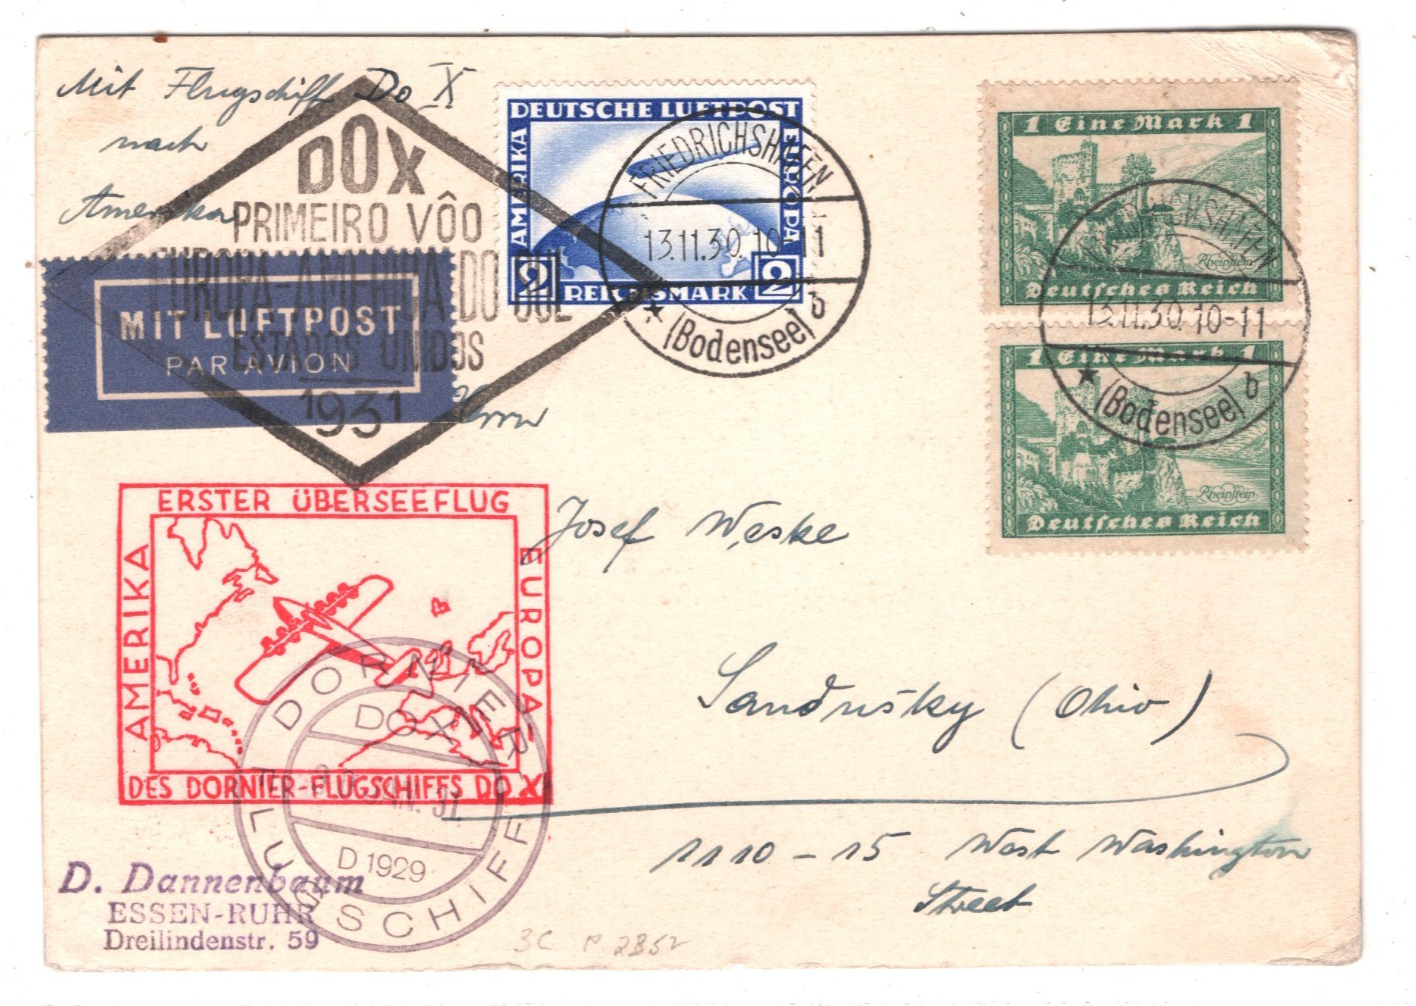 Mit Flugschiff Do X
nach
Amerika
DOX
PRIMEIRO VÔO
EUROPA-AMERICA DO SUL
ESTADOS UNIDOS
1931
MIT LUFTPOST
PAR AVION
DEUTSCHE LUFTPOST
AMERIKA
EUROPA
2 REICHSMARK 2
FRIEDRICHSHAFEN
13.11.30. 10-11
(Bodensee) b
1 Eine Mark 1
Rheinstein
Deutsches Reich
FRIEDRICHSHAFEN
13.11.30. 10-11
(Bodensee) b
1 Eine Mark 1
Rheinstein
Deutsches Reich
Herrn
Josef Weske
Sandusky (Ohio)
1110 - 15 West Washington
Street
ERSTER ÜBERSEEFLUG
AMERIKA
EUROPA
DES DORNIER-FLUGSCHIFFS DO X
DORNIER
DOX
JAN. 31.
D 1929
FLUGSCHIFF
D. Dannenbaum
ESSEN-RUHR
Dreilindenstr. 59